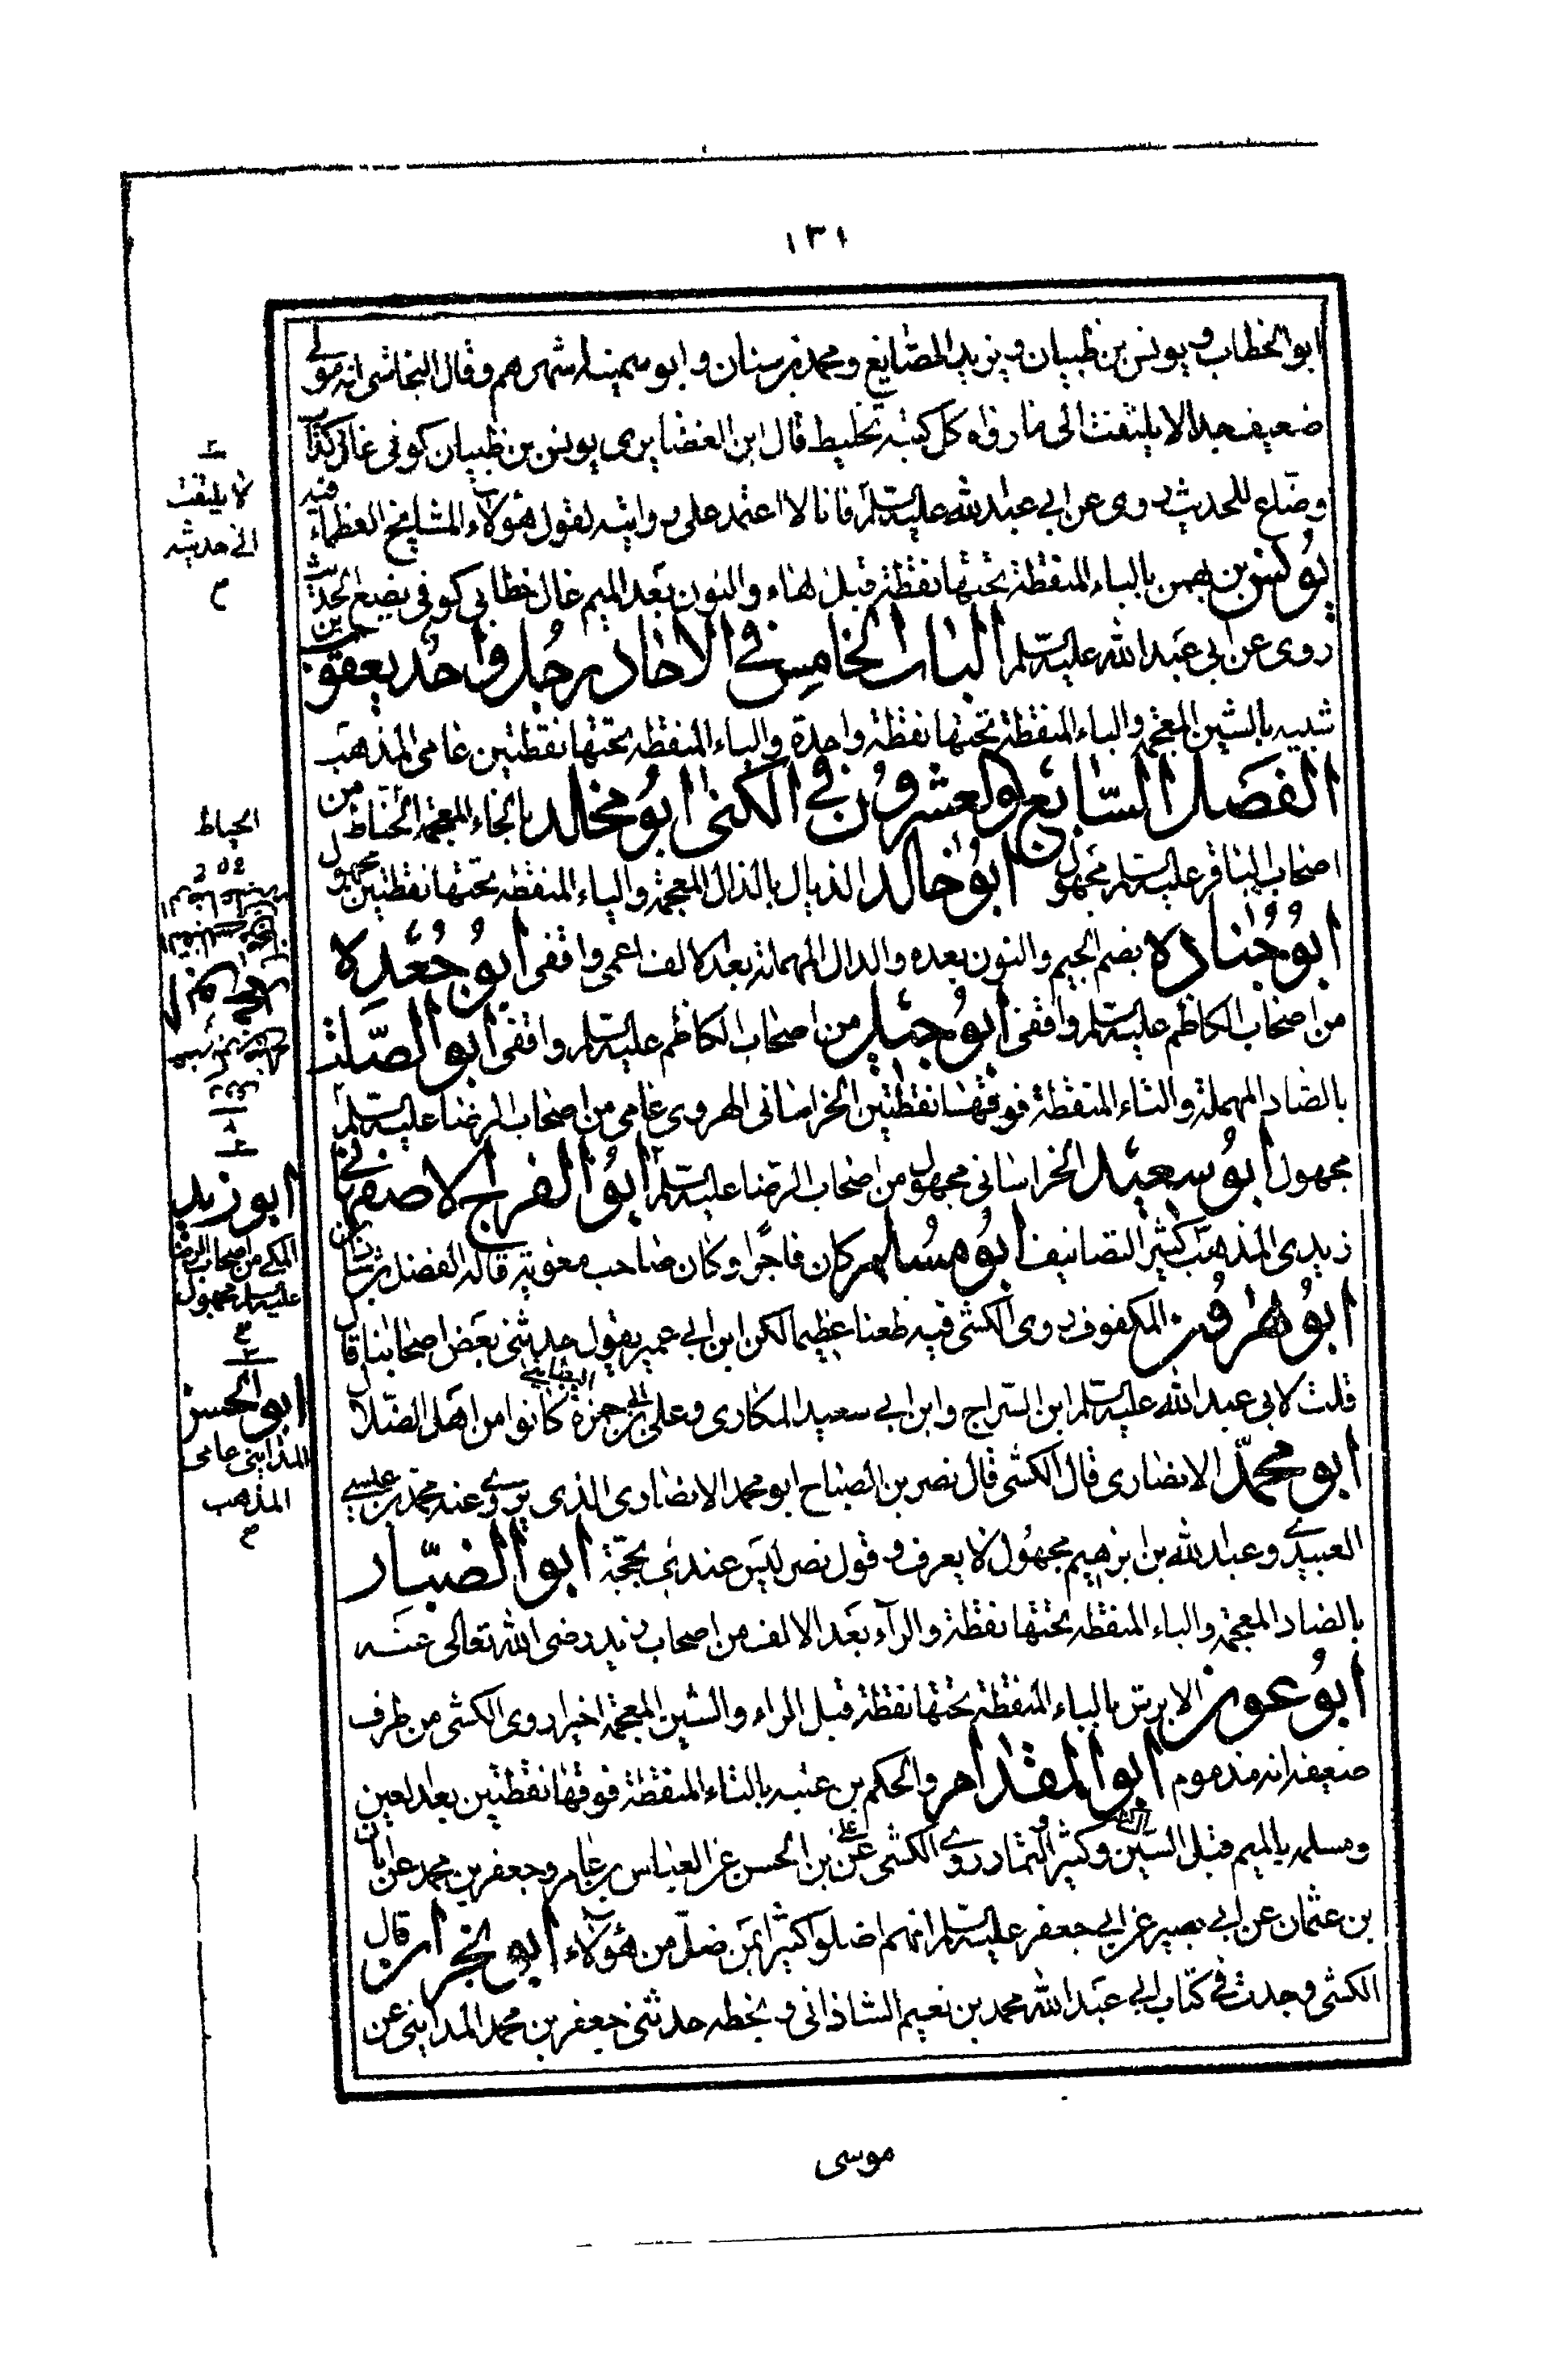 ١٣١
ابو الخطاب ويونس بن ظبيان ويزيد الصايغ ومحمد بن سنان وابو سمينة اشهرهم وقال النجاشى انه مولى
ضعيف جدا لا يلتفت الى ما رواه كل كتبه تخليط قال ابن الغضايرى يونس بن ظبيان كوفى غال كذاب
وضاع للحديث روى عن ابى عبد الله عليه السلم فانا لا اعتمد على روايته لقول هؤلاء المشايخ العظماء فيه
يونس بن بهمن بالباء المنقطة تحتها نقطة قبل الهاء والنون بعد الميم غال خطابى كوفى يضع الحديث
روى عن ابى عبد الله عليه السلم الباب الخامس فى الاحاد رجل واحد يعقوب بن
شيبه بالشين المعجمة والباء المنقطة تحتها نقطة واحدة والياء المنقطه تحتها نقطتين عامى المذهب
الفصل السابع والعشرون فى الكنى ابو مخالد بالخاء المعجمة الخياط من
اصحاب الباقر عليه السلم مجهول ابو خالد الذيال بالذال المعجمة والياء المنقطه تحتها نقطتين مجهول
ابو جنادة بضم الجيم والنون بعده والدال المهملة بعد الالف اعمى واقفى ابو جعده
من اصحاب الكاظم عليه السلم واقفى ابو جبل من اصحاب الكاظم عليه السلم واقفى ابو الصلت
بالصاد المهملة والتاء المنقطة فوقها نقطتين الخراسانى الهروى عامى من اصحاب الرضا عليه السلم
مجهول ابو سعيد الخراسانى مجهول من اصحاب الرضا عليه السلم ابو الفرج الاصفهانى
زيدى المذهب كثير التصانيف ابو مسلم كان فاجرا وكان صاحب معوية قاله الفضل بن شاذان
ابو هرون المكفوف روى الكشى فيه طعنا عظيما لكن ابن ابى عمير يقول حدثنى بعض اصحابنا قال
قلت لابى عبد الله عليه السلم ابن السراج وابن ابى سعيد المكارى وعلى بن ابى حمزة البطاينى كانوا من اهل الضلال
ابو محمد الانصارى قال الكشى قال نصر بن الصباح ابو محمد الانصارى الذى يروى عنه محمد بن عيسى
العبيدى وعبد الله بن ابرهيم مجهول لا يعرف وقول نصر ليس عندى بحجة ابو الضبار
بالضاد المعجمة والباء المنقطه تحتها نقطة والرآء بعد الالف من اصحاب زيد رضى الله تعالى عنه
ابو عون الابرش بالباء المنقطة تحتها نقطة قبل الراء والشين المعجمة اخيرا روى الكشى من طرف
ضعيفة انه مذموم ابو المقدام والحكم بن عتيبه بالتاء المنقطة فوقها نقطتين بعد العين
ومسلمه بالميم قبل السين وكثير التمار روى الكشى عن على بن الحسن عن العباس بن عامر وجعفر بن محمد عن ابان
بن عثمان عن ابى بصير عن ابى جعفر عليه السلم انهم اضلوا كثيرا ممن ضل من هؤلاء ابو بحر ان قال
الكشى وجدت فى كتاب ابى عبد الله محمد بن نعيم الشاذانى وبخطه حدثنى جعفر بن محمد المداينى عن
موسى
لا يلتفت
الى حديثه
م
الحياط
ابو زيد
المكى من اصحاب الرضا
عليه السلم مجهول
ابو الحسن
المداينى عامى
المذهب
م